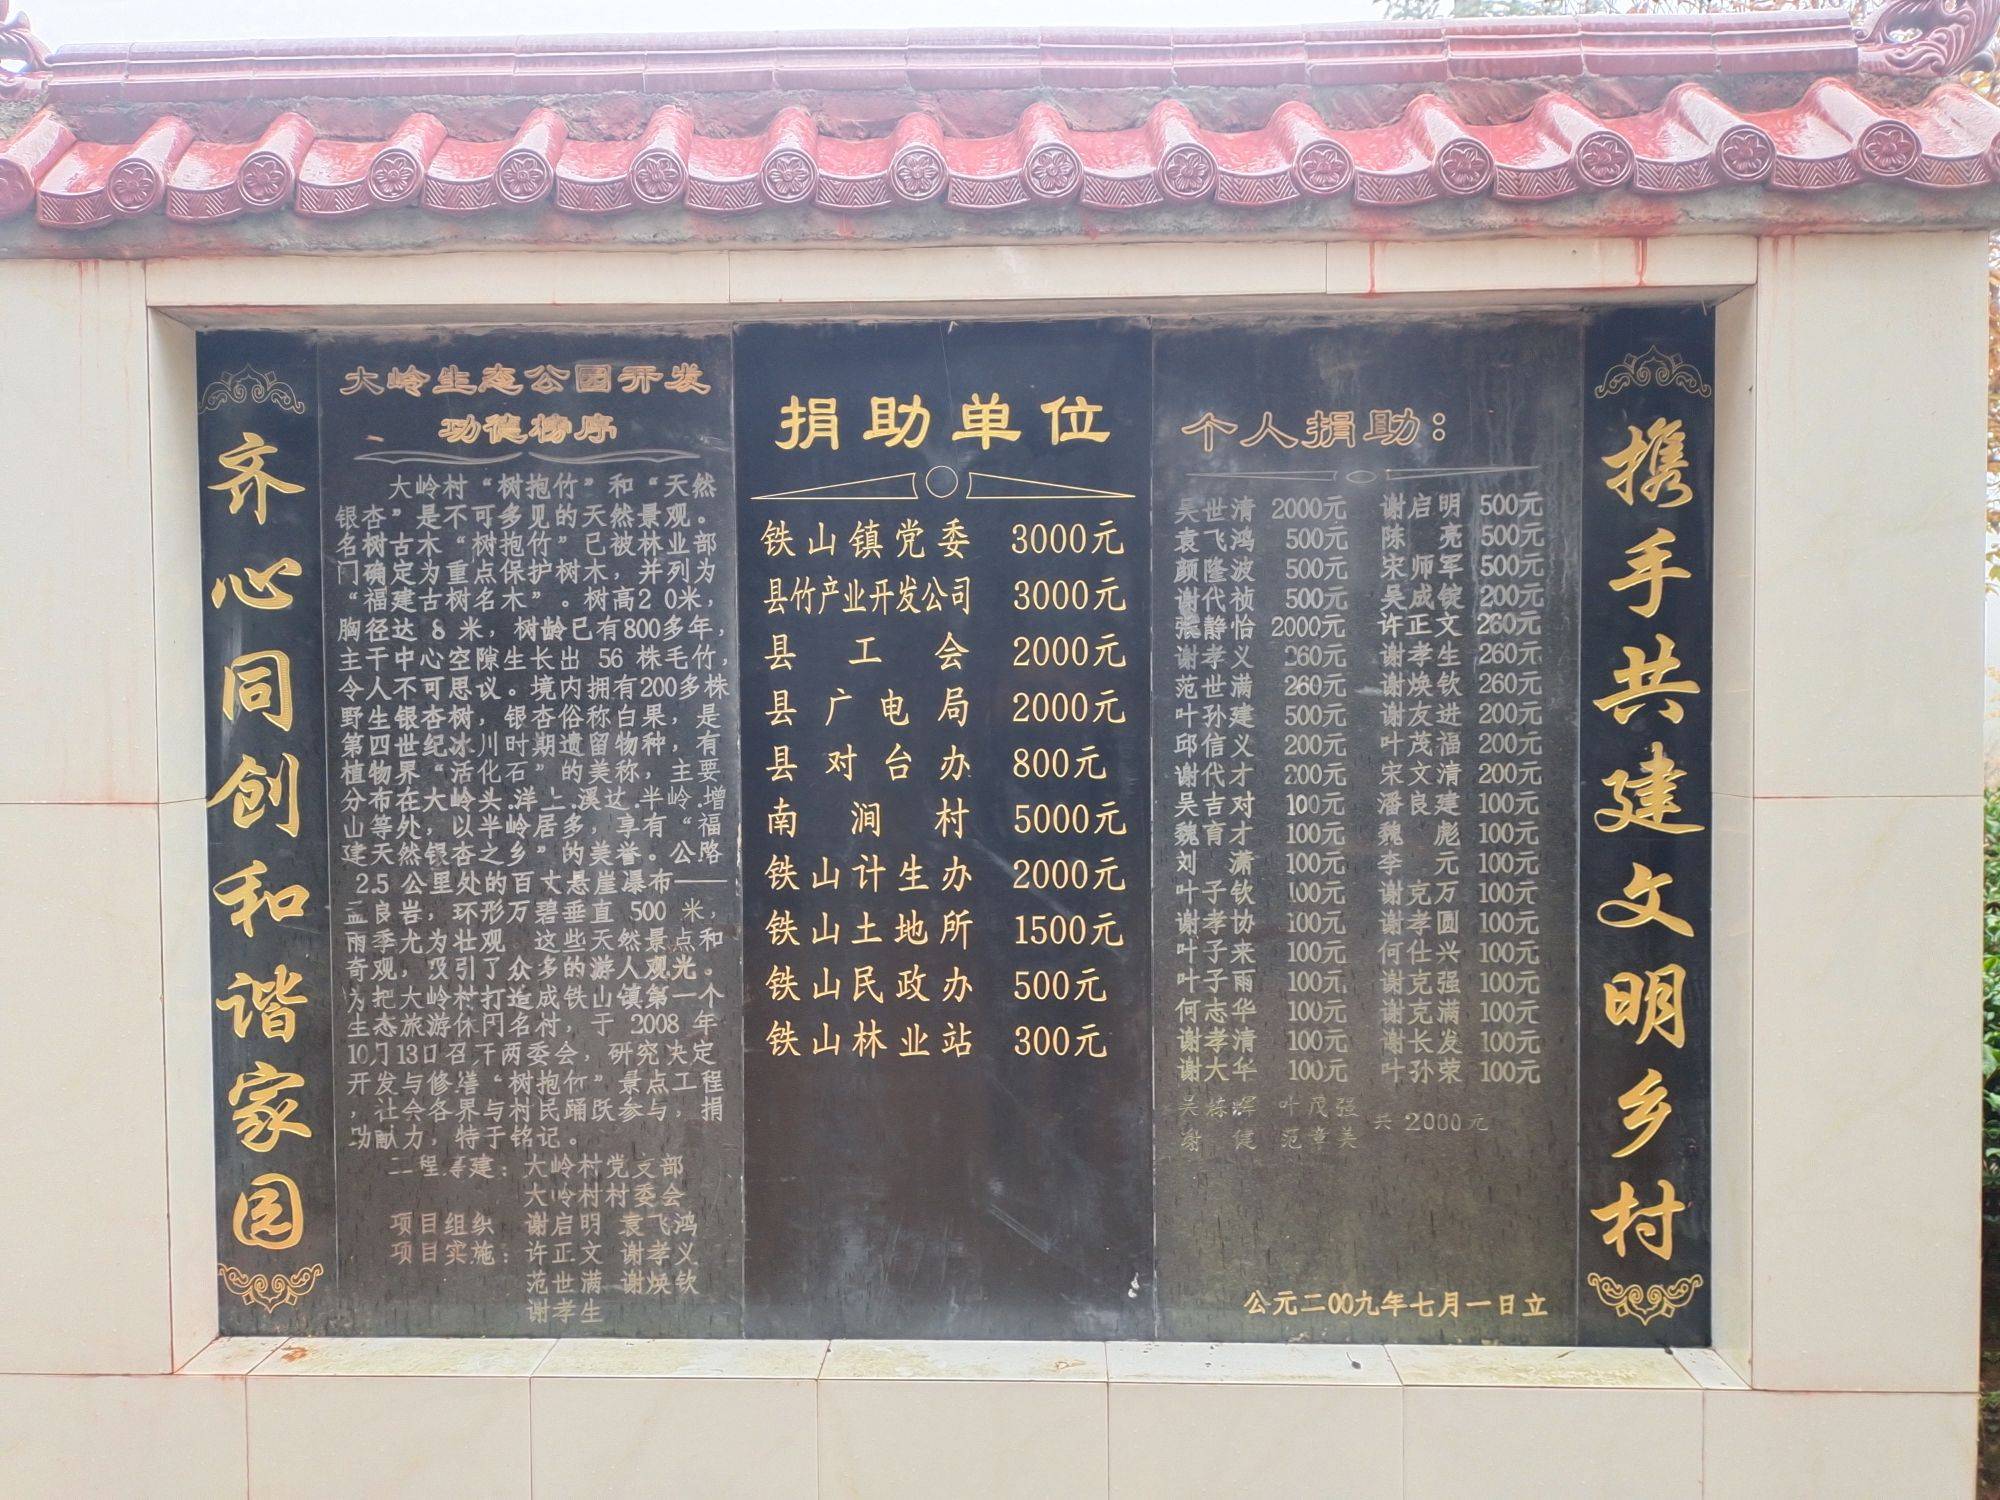 齐心同创和谐家园
大岭生态公园开发
功德榜序
大岭村“树抱竹”和“天然
银杏”是不可多见的天然景观。
名树古木“树抱竹”已被林业部
门确定为重点保护树木，并列为
“福建古树名木”。树高20米，
胸径达8米，树龄已有800多年，
主干中心空隙生长出56株毛竹，
令人不可思议。境内拥有200多株
野生银杏树，银杏俗称白果，是
第四世纪冰川时期遗留物种，有
植物界“活化石”的美称，主要
分布在大岭头.洋上.溪达.半岭.增
山等处，以半岭居多，享有“福
建天然银杏之乡”的美誉。公路
2.5公里处的百丈悬崖瀑布——
孟良岩，环形万碧垂直500米，
雨季尤为壮观 这些天然景点和
奇观，吸引了众多的游人观光。
为把大岭村打造成铁山镇第一个
生态旅游休闲名村，于2008年
10月13日召开两委会，研究决定
开发与修缮“树抱竹”景点工程
，社会各界与村民踊跃参与，捐
助献力，特于铭记。
工程筹建：大岭村党支部
大岭村村委会
项目组织 谢启明 袁飞鸿
项目实施：许正文 谢孝义
范世满 谢焕钦
谢孝生
捐助单位
铁山镇党委 3000元
县竹产业开发公司 3000元
县工会 2000元
县广电局 2000元
县对台办 800元
南涧村 5000元
铁山计生办 2000元
铁山土地所 1500元
铁山民政办 500元
铁山林业站 300元
个人捐助：
吴世清 2000元 谢启明 500元
袁飞鸿 500元 陈亮 500元
颜隆波 500元 宋师军 500元
谢代祯 500元 吴成锭 200元
张静怡 2000元 许正文 260元
谢孝义 260元 谢孝生 260元
范世满 260元 谢焕钦 260元
叶孙建 500元 谢友进 200元
邱信义 200元 叶茂福 200元
谢代才 200元 宋文清 200元
吴吉对 100元 潘良建 100元
魏育才 100元 魏彪 100元
刘潇 100元 李元 100元
叶子钦 100元 谢克万 100元
谢孝协 100元 谢孝圆 100元
叶子来 100元 何仕兴 100元
叶子雨 100元 谢克强 100元
何志华 100元 谢克满 100元
谢孝清 100元 谢长发 100元
谢大华 100元 叶孙荣 100元
吴栋辉 叶茂强
谢健 范章美 共2000元
公元二00九年七月一日立
携手共建文明乡村